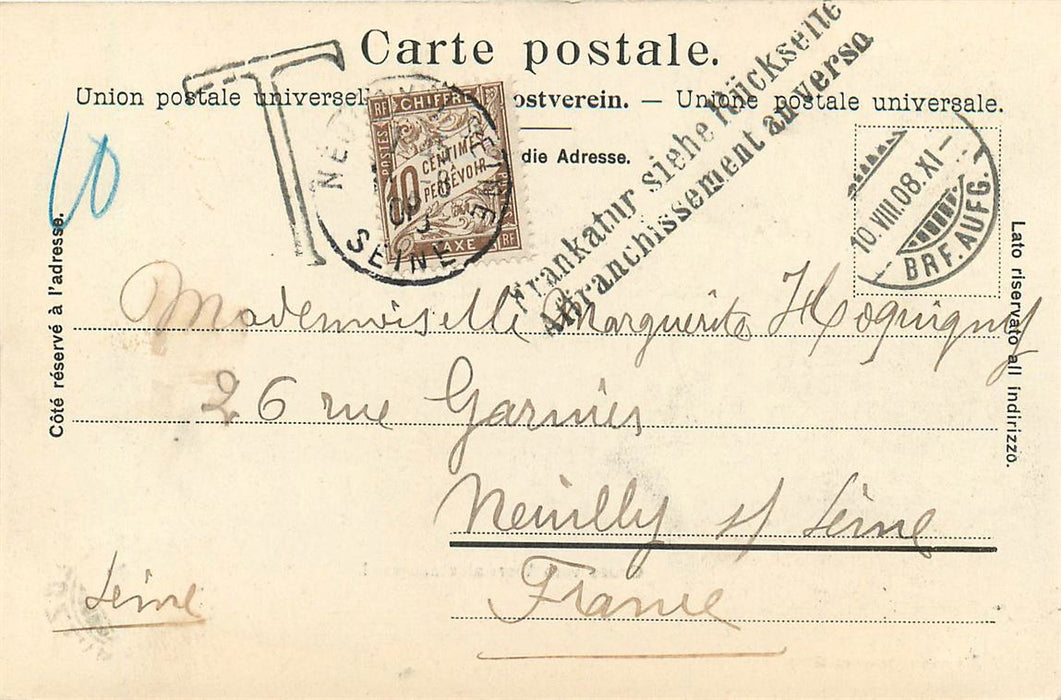 Carte postale.
Union postale universelle ostverein. — Unione postale universale.
die Adresse.
T
10
RF CHIFFRE
POSTES
10 CENTIMES
À PERCEVOIR
TAXE RF
SEINE
Frankatur siehe Rückseite
Affranchissement au verso
10.VIII.08.XI–
BRF.AUFG.
Côté réservé à l'adresse.
Lato riservato all indirizzo.
Mademoiselle Marguerite Hoquigny
26 rue Garnier
Neuilly s/ Seine
Seine
France